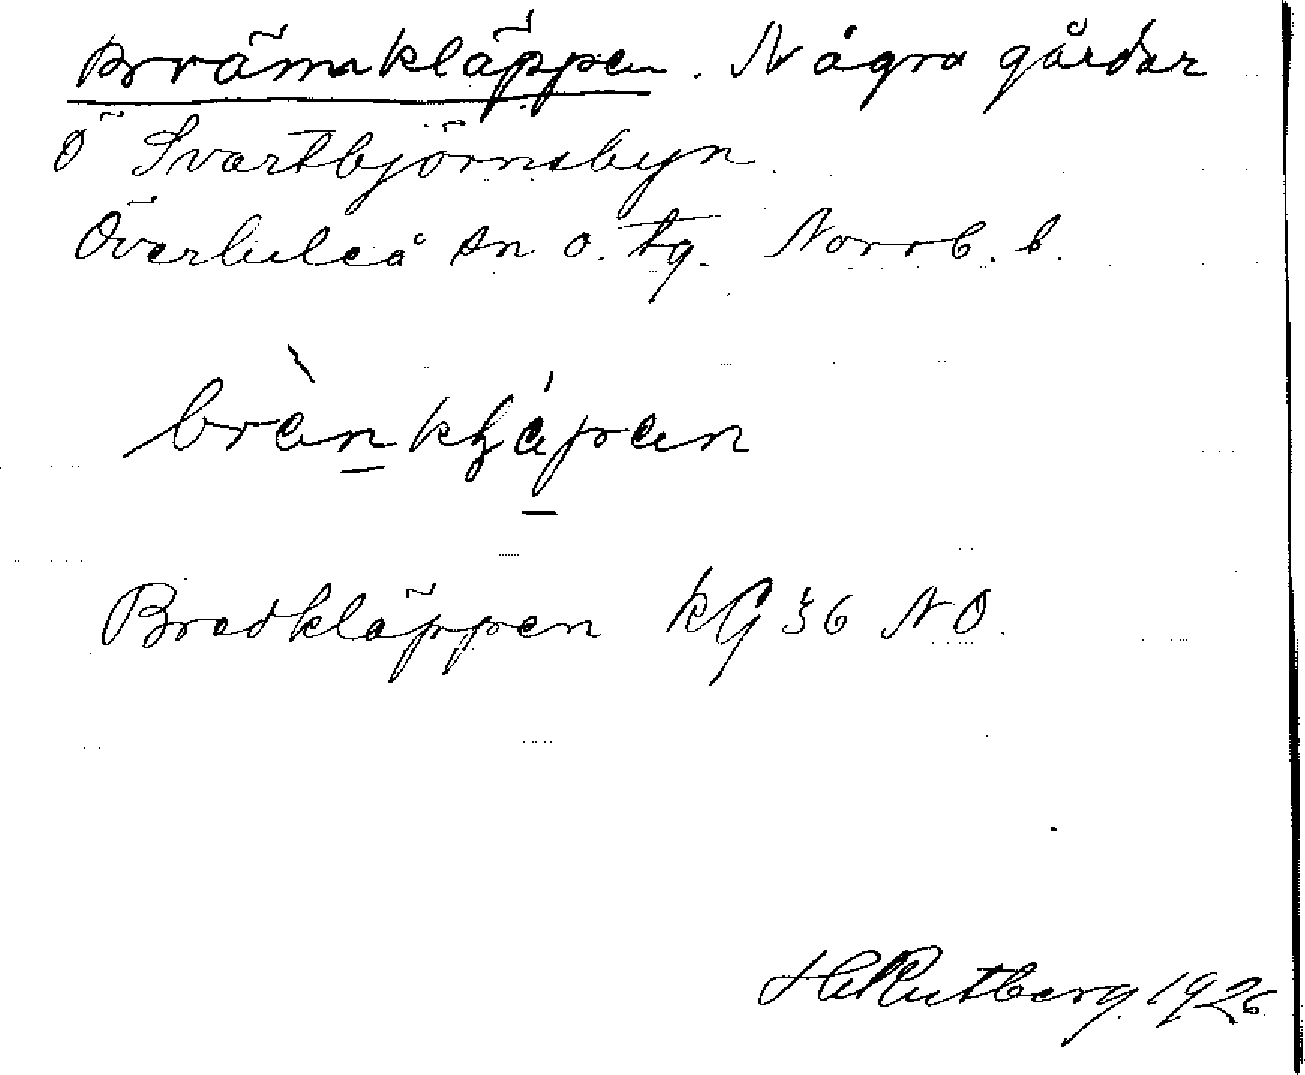 Brännkläppen. Några gårdar
Ö Svartbjörnsbyn.
Överluleå sn o. tg. Norrb. l.
Bredkläppen kG 36 NO.
H Rutberg 1926